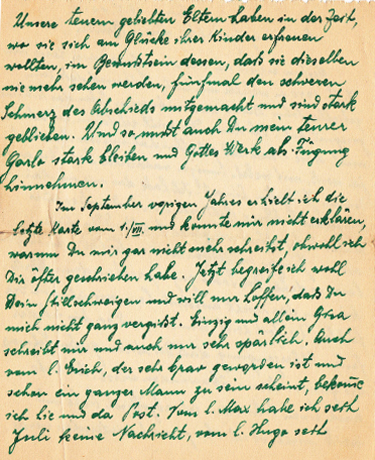 Unsere teuern geliebten Eltern haben in der Zeit,
wo sie sich am Glücke ihrer Kinder erfreuen
wollten, im Bewußtsein dessen, daß sie dieselben
nie mehr sehen werden, fünfmal den schweren
Schmerz des Abschieds mitgemacht und sind stark
geblieben. Und so mußt auch Du mein teurer
Carlo stark bleiben und Gottes Werk als Fügung
hinnehmen.
Im September vorigen Jahres erhielt ich die
letzte Karte vom 1./VII. und konnte mir nicht erklären,
warum Du mir gar nicht mehr schreibst, obwohl ich
Dir öfter geschrieben habe. Jetzt begreife ich wohl
Dein Stillschweigen und will nur hoffen, daß Du
mich nicht ganz vergißt. Einzig und allein
schreibt mir und auch nur sehr spärlich. Auch
vom l. Erich, der sehr brav geworden ist und
schon ein ganzer Mann zu sein scheint, bekomme
ich hie und da Post. Vom l. Max habe ich seit
Juli keine Nachricht, vom l. Hugo seit